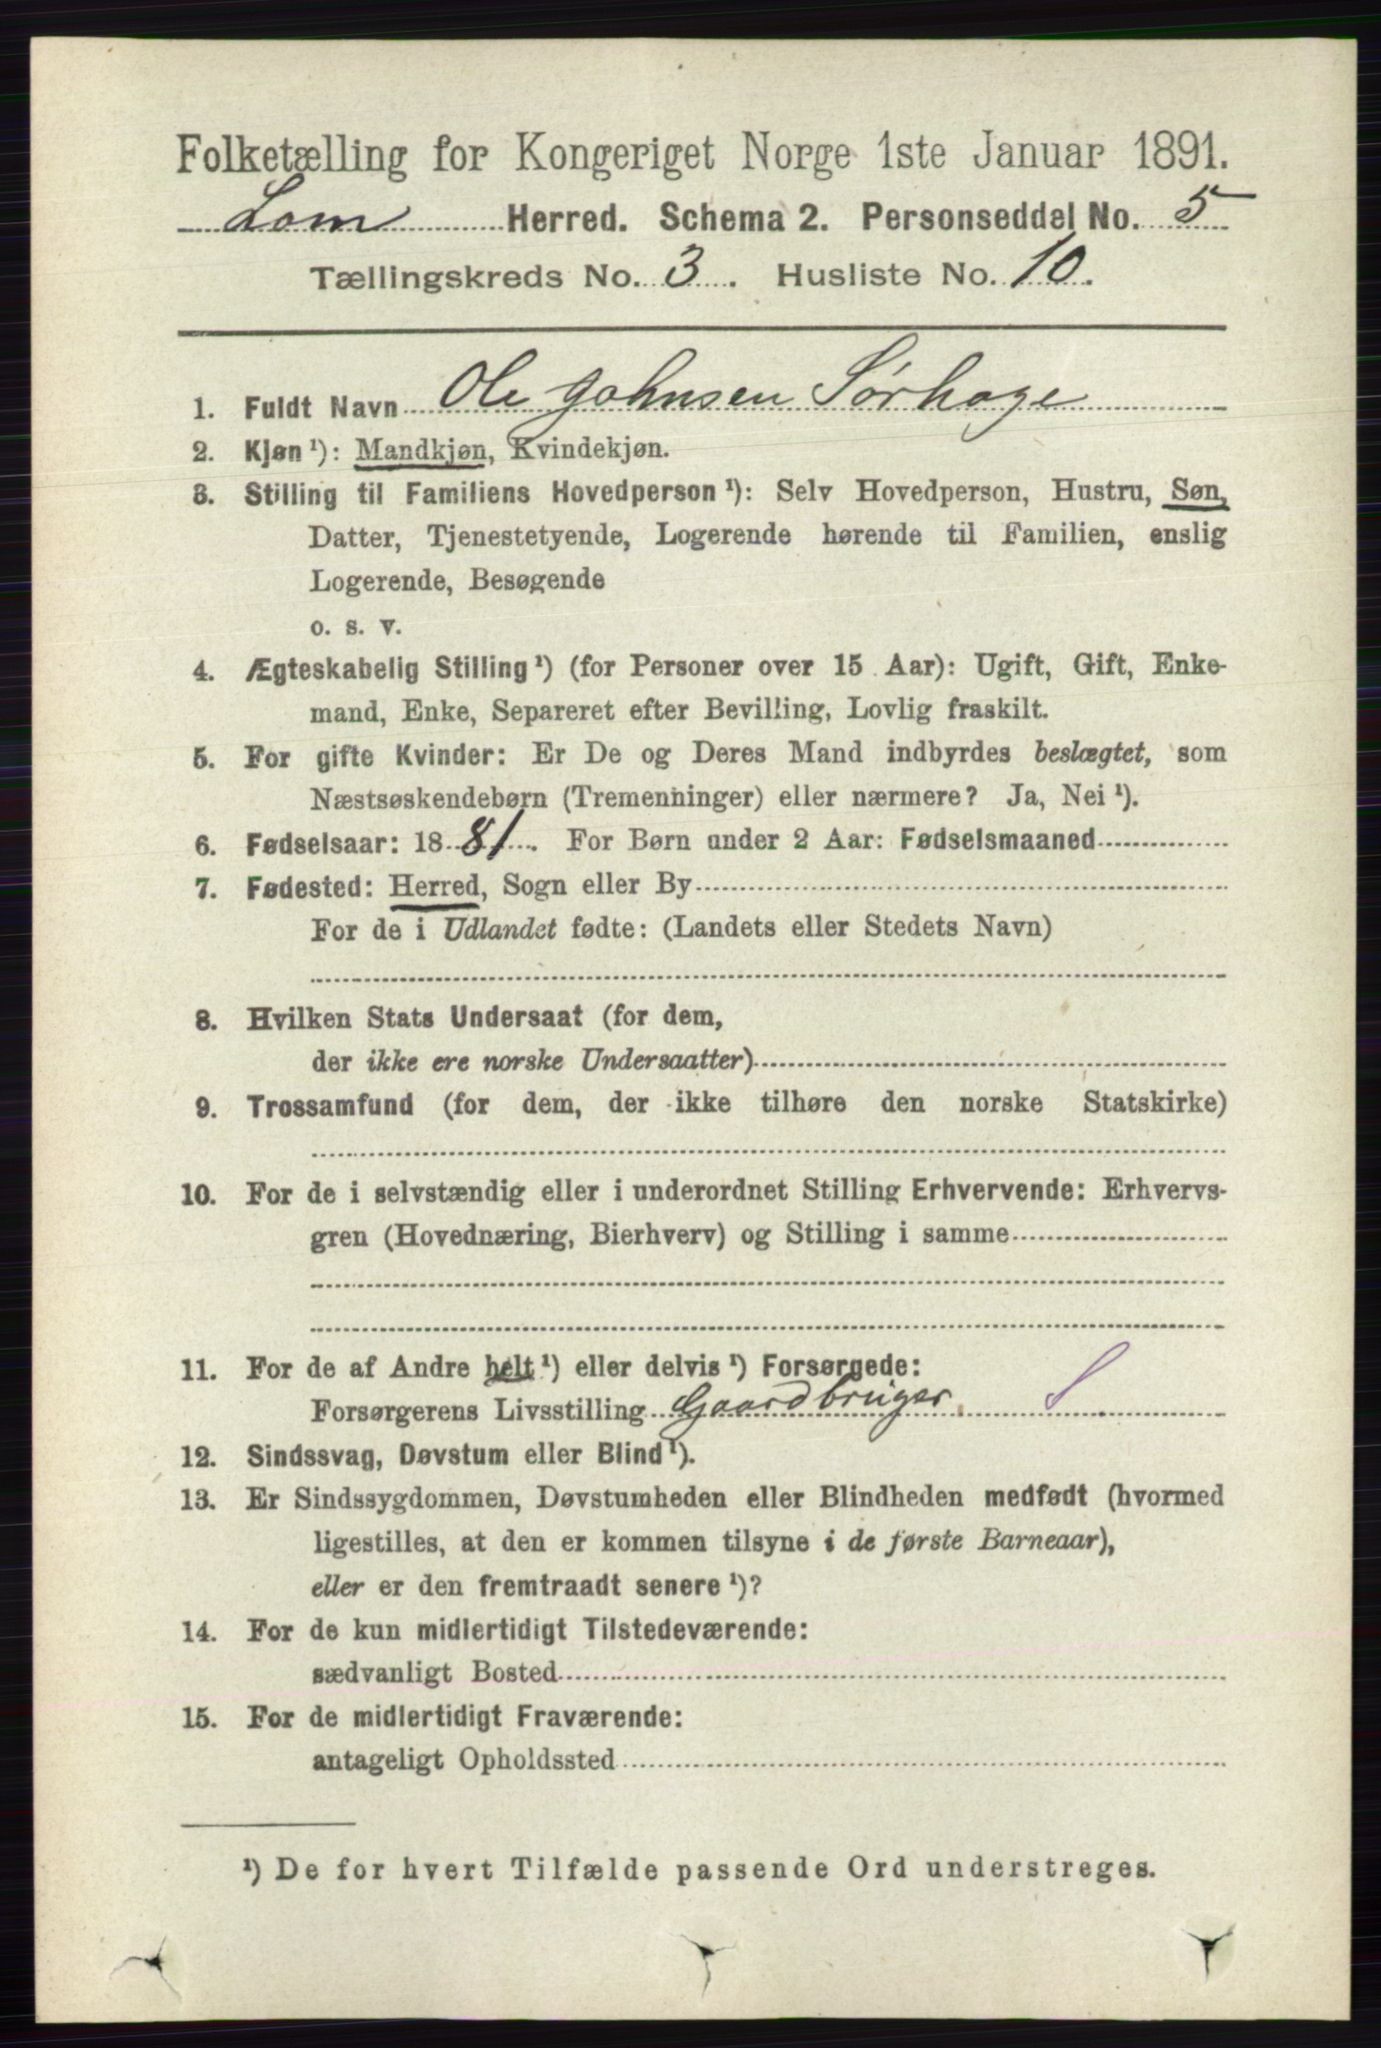 Folketælling for Kongeriget Norge 1ste Januar 1891.
Lom Herred. Schema 2. Personseddel No. 5
Tællingskreds No. 3. Husliste No. 10.
1. Fuldt Navn Ole Johnsen Sørhage
2. Kjøn¹): Mandkjøn, Kvindekjøn.
3. Stilling til Familiens Hovedperson¹): Selv Hovedperson, Hustru, Søn,
Datter, Tjenestetyende, Logerende hørende til Familien, enslig
Logerende, Besøgende
o. s. v.
4. Ægteskabelig Stilling¹) (for Personer over 15 Aar): Ugift, Gift, Enke-
mand, Enke, Separeret efter Bevilling, Lovlig fraskilt.
5. For gifte Kvinder: Er De og Deres Mand indbyrdes beslægtet, som
Næstsøskendebørn (Tremenninger) eller nærmere? Ja, Nei¹).
6. Fødselsaar: 1881. For Børn under 2 Aar: Fødselsmaaned
7. Fødested: Herred, Sogn eller By
For de i Udlandet fødte: (Landets eller Stedets Navn)
8. Hvilken Stats Undersaat (for dem,
der ikke ere norske Undersaatter)
9. Trossamfund (for dem, der ikke tilhøre den norske Statskirke)
10. For de i selvstændig eller i underordnet Stilling Erhvervende: Erhvervs-
gren (Hovednæring, Bierhverv) og Stilling i samme
11. For de af Andre helt¹) eller delvis¹) Forsørgede:
Forsørgerens Livsstilling Gaardbruger. S
12. Sindssvag, Døvstum eller Blind¹).
13. Er Sindssygdommen, Døvstumheden eller Blindheden medfødt (hvormed
ligestilles, at den er kommen tilsyne i de første Barneaar),
eller er den fremtraadt senere¹)?
14. For de kun midlertidigt Tilstedeværende:
sædvanligt Bosted
15. For de midlertidigt Fraværende:
antageligt Opholdssted
¹) De for hvert Tilfælde passende Ord understreges.